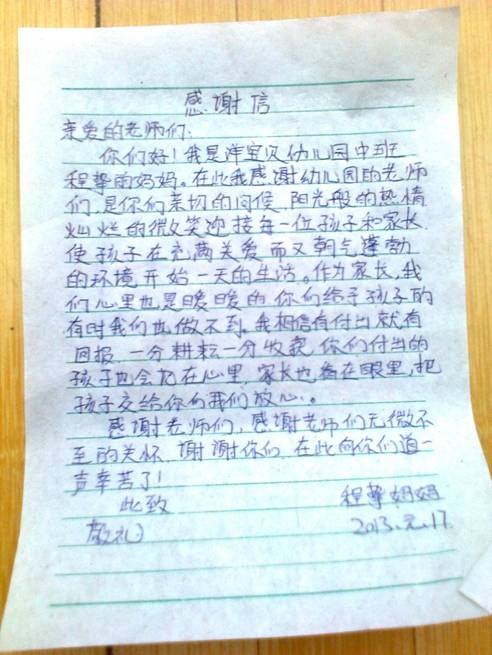 感谢信
亲爱的老师们:
你们好!我是洋宝贝幼儿园中班
程挚的妈妈。在此我感谢幼儿园的老师
们,是你们亲切的问候,阳光般的热情
灿烂的微笑迎接每一位孩子和家长
使孩子在充满关爱而又朝气蓬勃
的环境开始一天的生活。作为家长,我
们心里也是暖暖的,你们给予孩子的
有时我们也做不到,我相信有付出就有
回报,一分耕耘一分收获,你们付出的
孩子也会记在心里,家长也看在眼里,把
孩子交给你们我们放心。
感谢老师们,感谢老师们无微不
至的关怀,谢谢你们,在此向你们道一
声辛苦了!
此致 程挚妈妈
敬礼 2013.元.17.